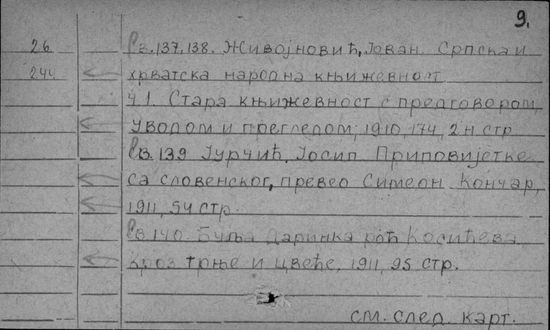 9.
26 Св. 137, 138. Живојновић, Јован. Српска и
244 хрватска народна књижевност
Ч 1. Стара књижевност с предговором,
уводом и прегледом, 1910, 174, 2 н стр
Св. 139 Јурчић, Јосип Приповијетке
са словенског, превео Симеон Кончар,
1911, 54 стр.
Св. 140. Буља Даринка рођ Косићева
Кроз трње и цвеће, 1911, 95 стр.
см. след. карт.